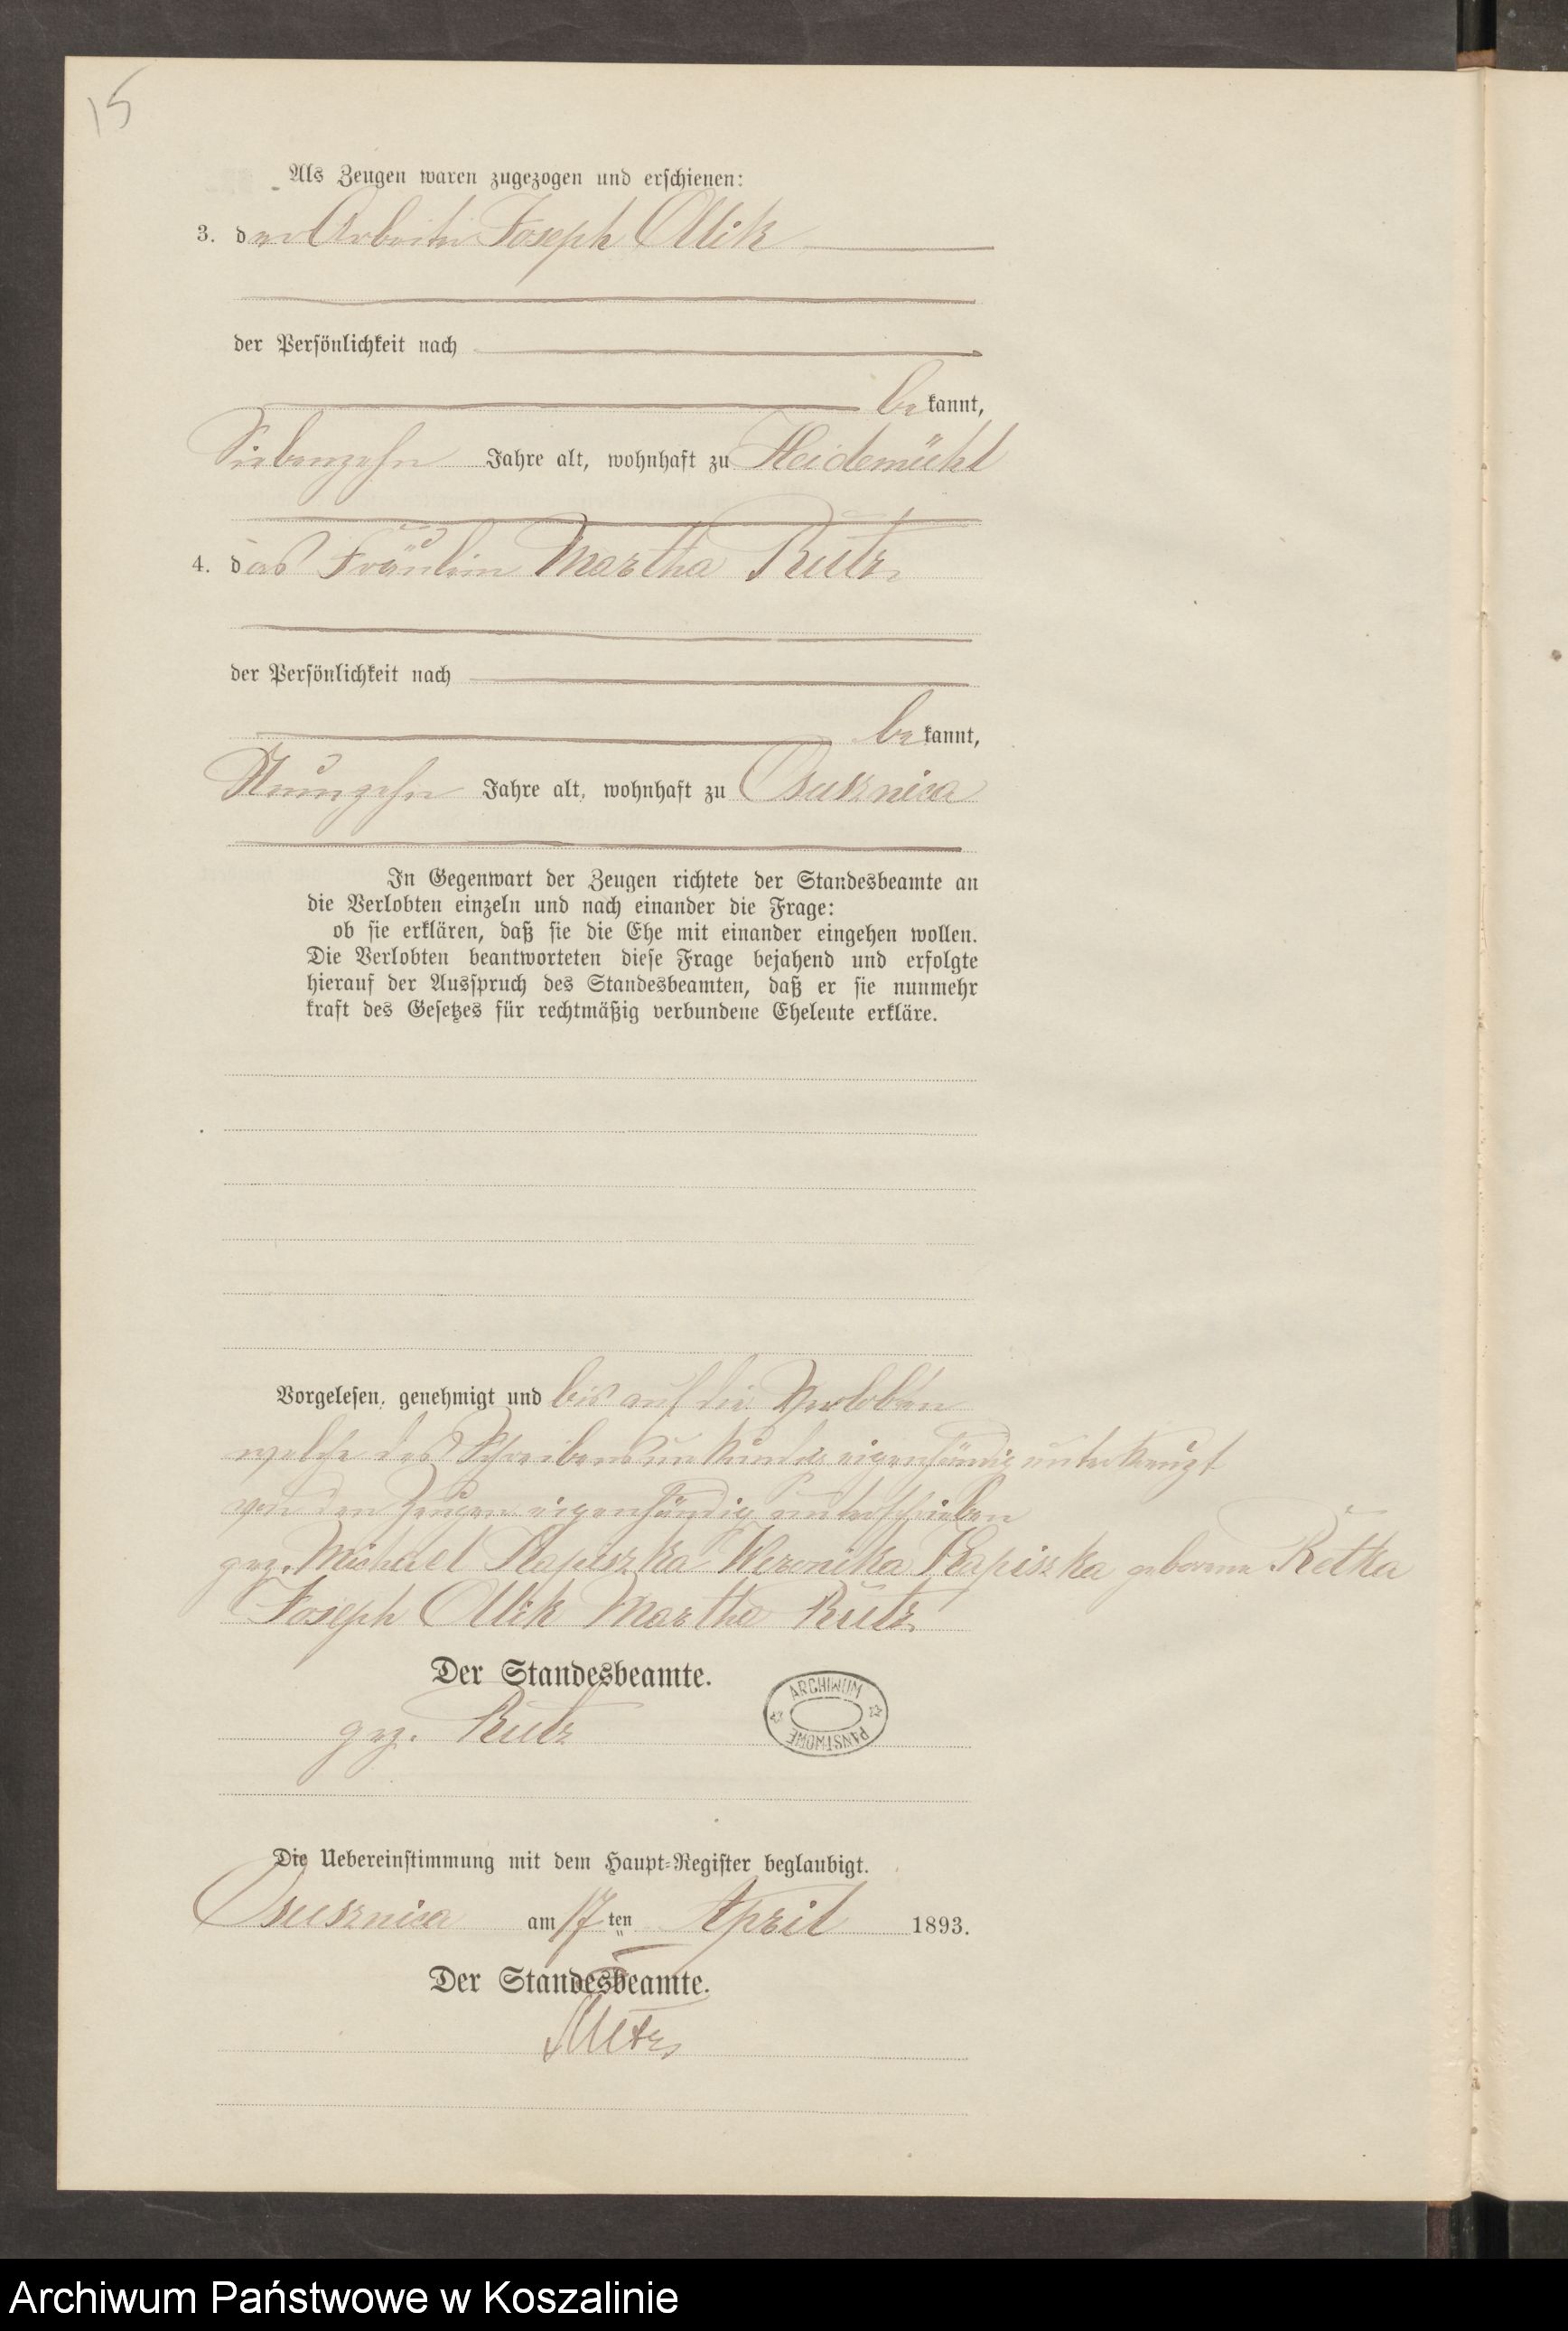 15
Als Zeugen waren zugezogen und erschienen:
3. der Arbeiter Joseph Ollik
der Persönlichkeit nach
bekannt,
Siebenzehn Jahre alt, wohnhaft zu Heidemühl
4. das Fräulein Martha Rutz
der Persönlichkeit nach
bekannt,
Neunzehn Jahre alt, wohnhaft zu Osusznica
In Gegenwart der Zeugen richtete der Standesbeamte an
die Verlobten einzeln und nach einander die Frage:
ob sie erklären, daß sie die Ehe mit einander eingehen wollen.
Die Verlobten beantworteten diese Frage bejahend und erfolgte
hierauf der Ausspruch des Standesbeamten, daß er sie nunmehr
kraft des Gesetzes für rechtmäßig verbundene Eheleute erkläre.
Vorgelesen, genehmigt und bis auf die Verlobten
welche des Schreibens unkundig eigenhändig unterkreuzt
von den Zeugen eigenhändig unterschrieben
gez. Michael Klapiszka Weronika Klapiszka geborene Retka
Joseph Ollik Martha Rutz
Der Standesbeamte.
gez. Rutz
ARCHIWUM PAŃSTWOWE
Die Uebereinstimmung mit dem Haupt-Register beglaubigt.
Osusznica am 17ten April 1893.
Der Standesbeamte.
Rutz
Archiwum Państwowe w Koszalinie